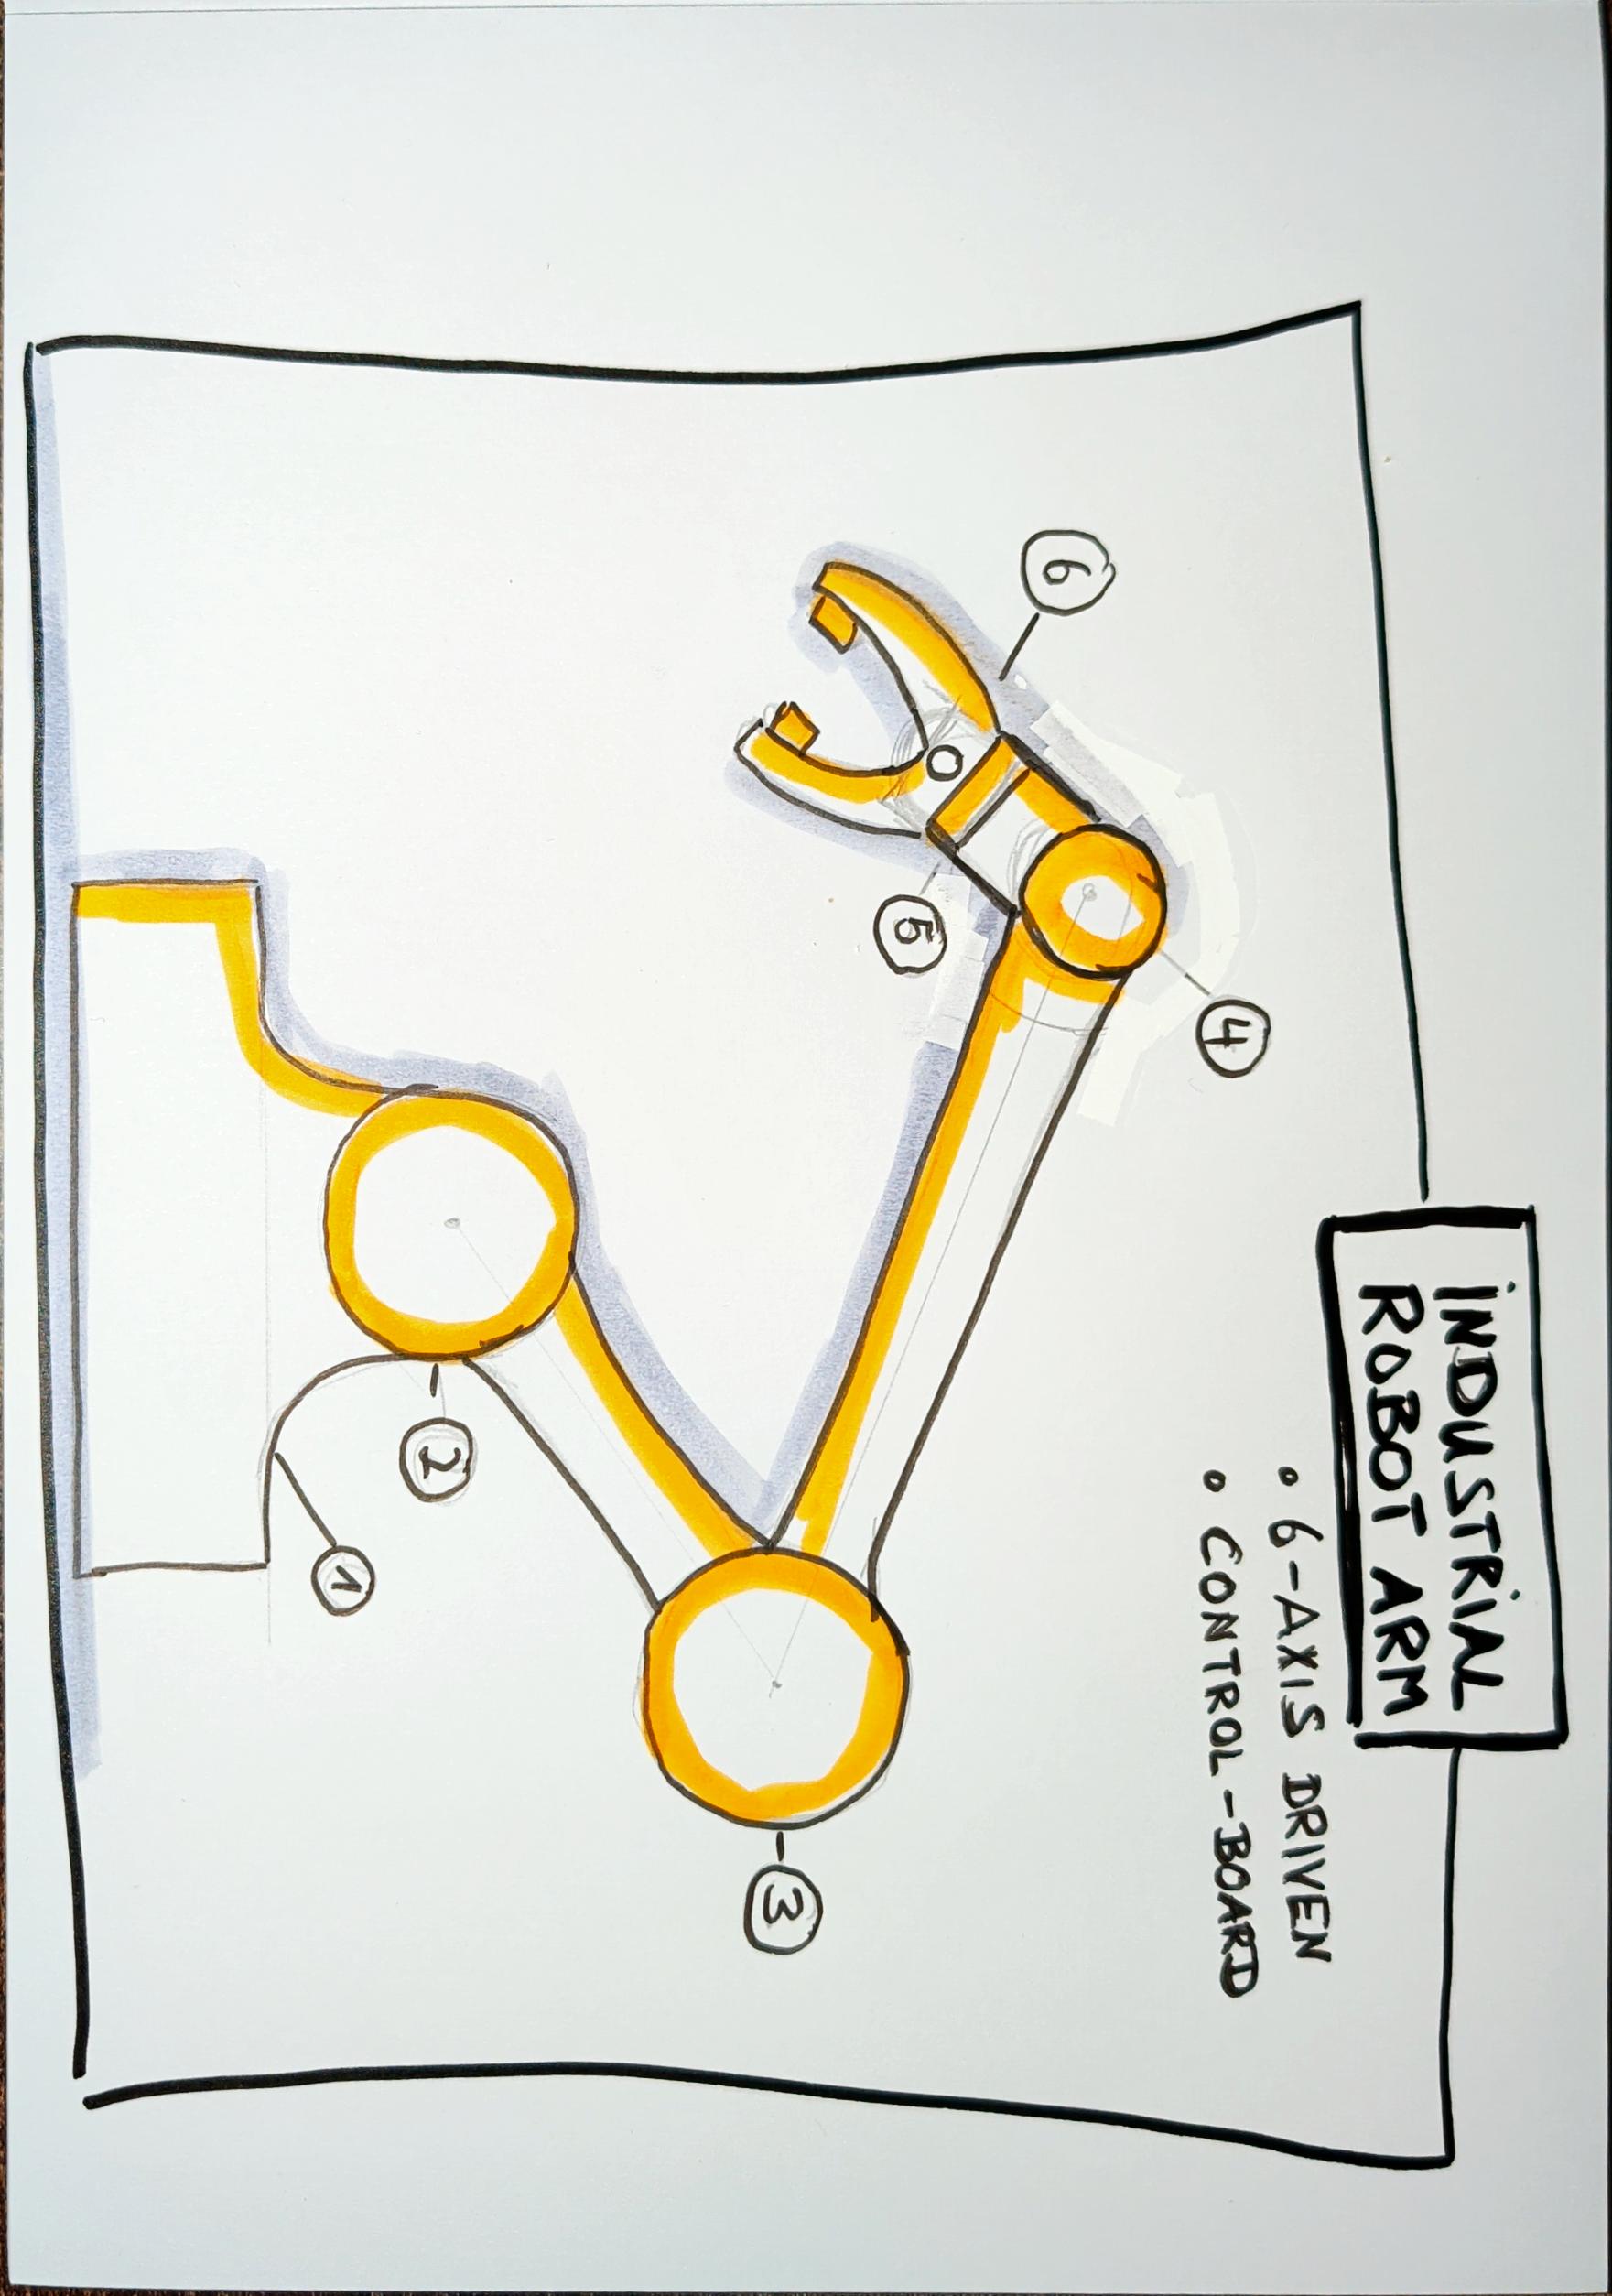 INDUSTRIAL
ROBOT ARM
• 6-AXIS DRIVEN
• CONTROL-BOARD
6
4
5
2
1
3